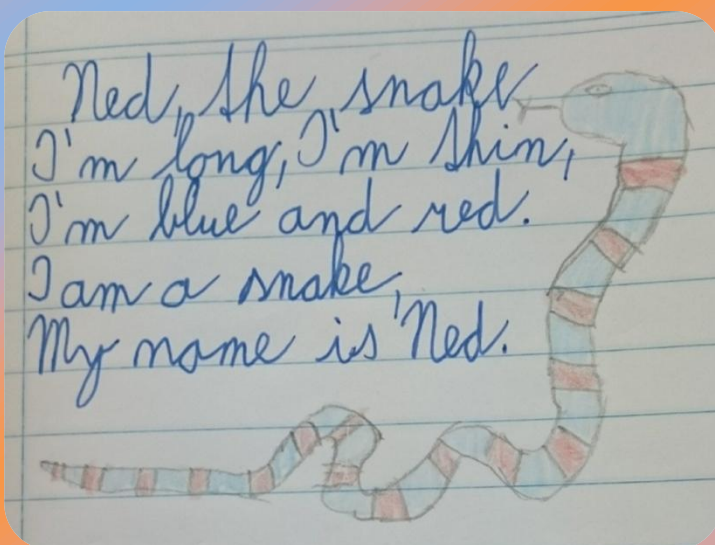 Ned, the snake
I'm long, I'm thin,
I'm blue and red.
I am a snake,
My name is Ned.